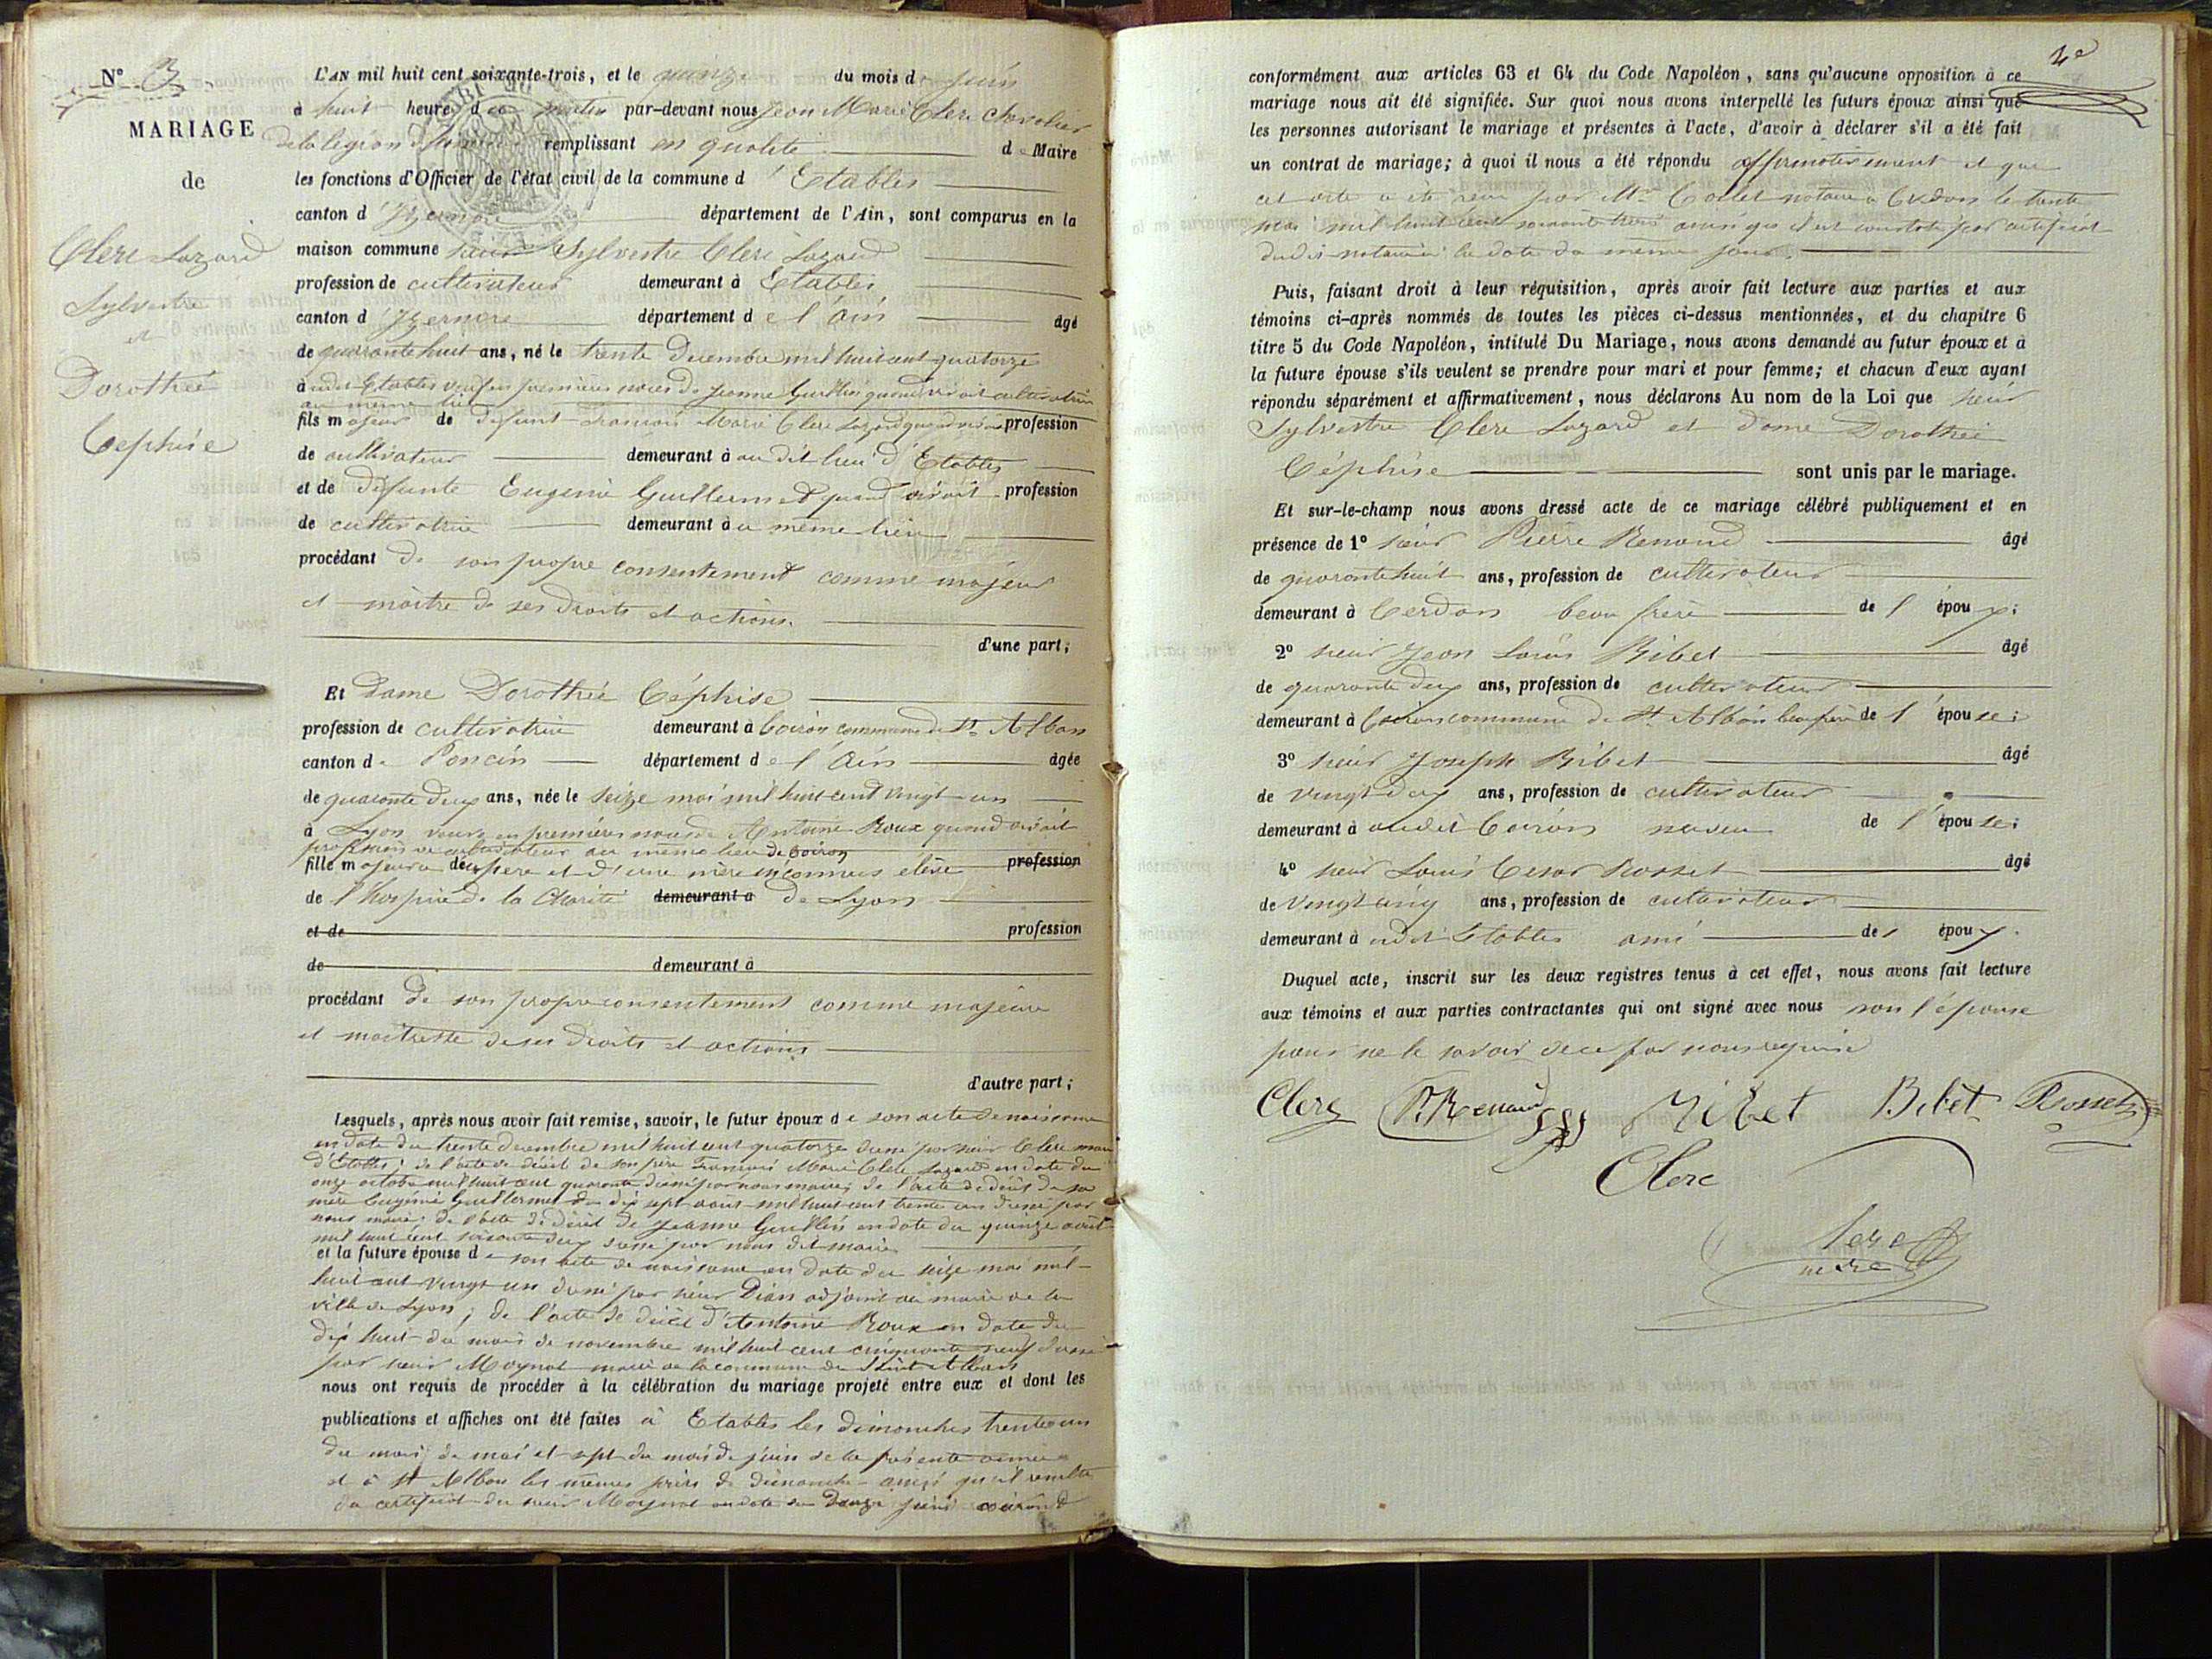 N° 3
MARIAGE
de
Clerc Lazard
Sylvestre
et
Dorothée
Céphise
L'AN mil huit cent soixante-trois, et le quinze du mois de juin
à huit heures du matin par-devant nous Jean Marie Clerc chevalier
de la légion d'honneur remplissant en qualité de Maire
les fonctions d'Officier de l'état civil de la commune d'Etables
canton d'Izernore département de l'Ain, sont comparus en la
maison commune sieur Sylvestre Clerc Lazard
profession de cultivateur demeurant à Etables
canton d'Izernore département de l'Ain âgé
de quarante huit ans, né le trente decembre mil huit cent quatorze
à udit Etables veuf en premières noces de Jeanne Guillin quand vivait cultivatrice
au même lieu
fils majeur de défunt François Marie Clerc Lazard quand vivait profession
de cultivateur demeurant à au dit lieu d'Etables
et de défunte Eugénie Guillermet quand vivait profession
de cultivatrice demeurant à u même lieu
procédant de son propre consentement comme majeur
et maître de ses droits et actions.
d'une part;
Et Dame Dorothée Céphise
profession de cultivatrice demeurant à Coiron commune de St Alban
canton de Poncin département de l'Ain âgée
de quarante deux ans, née le seize mai mil huit cent vingt un
à Lyon veuve en premières noces de Antoine Roux quand vivait
profession de cultivateur au même lieu de Coiron
fille majeure de père et d'une mère inconnus élève profession
de l'hospice de la Charité demeurant à de Lyon
et de profession
de demeurant à
procédant de son propre consentement comme majeure
et maitresse de ses droits et actions
d'autre part;
Lesquels, après nous avoir fait remise, savoir, le futur époux de son acte de naissance
en date du trente decembre mil huit cent quatorze dressé par sieur Clerc maire
d'Etables; de l'acte de décès de son père François Marie Clerc Lazard en date du
onze octobre mil huit cent quarante dressé par nous maire; de l'acte de décès de sa
mère Eugénie Guillermet du dix sept aout mil huit cent trente un dressé par
nous maire; de l'acte de décès de Jeanne Guillin en date du quinze avril
mil huit cent soixante deux dressé par nous dit maire
et la future épouse de son acte de naissance en date du seize mai mil
huit cent vingt un dressé par sieur Dian adjoint au maire de la
ville de Lyon; de l'acte de décès d'Antoine Roux en date du
dix huit du mois de novembre mil huit cent cinquante neuf dressé
par sieur Moynat maire de la commune de Saint Alban
nous ont requis de procéder à la célébration du mariage projeté entre eux et dont les
publications et affiches ont été faites à Etables les dimanches trente un
du mois de mai et sept du mois de juin de la présente année
et à St Alban les mêmes jours de dimanche ainsi qu'il résulte
du certificat du sieur Moynat en date du douze juin courant
2e
conformément aux articles 63 et 64 du Code Napoléon, sans qu'aucune opposition à ce
mariage nous ait été signifiée. Sur quoi nous avons interpellé les futurs époux ainsi que
les personnes autorisant le mariage et présentes à l'acte, d'avoir à déclarer s'il a été fait
un contrat de mariage; à quoi il nous a été répondu affirmativement et que
cet acte a été reçu par Me notaire à Cerdon le trente
mai mil huit cent soixante trois ainsi qu'il est constaté par certificat
dudit notaire à la date du même jour.
Puis, faisant droit à leur réquisition, après avoir fait lecture aux parties et aux
témoins ci-après nommés de toutes les pièces ci-dessus mentionnées, et du chapitre 6
titre 5 du Code Napoléon, intitulé Du Mariage, nous avons demandé au futur époux et à
la future épouse s'ils veulent se prendre pour mari et pour femme; et chacun d'eux ayant
répondu séparément et affirmativement, nous déclarons Au nom de la Loi que sieur
Sylvestre Clerc Lazard et dame Dorothée
Céphise sont unis par le mariage.
Et sur-le-champ nous avons dressé acte de ce mariage célébré publiquement et en
présence de 1° sieur Pierre Renaud âgé
de quarante huit ans, profession de cultivateur
demeurant à Cerdon beau frère de l'époux;
2° sieur Jean Louis Bibet âgé
de quarante deux ans, profession de cultivateur
demeurant à Coiron commune de St Alban beau frère de l'épouse;
3° sieur Joseph Bibet âgé
de vingt deux ans, profession de cultivateur
demeurant à audit Coiron neveu de l'épouse;
4° sieur Louis Cesar Rosset âgé
de vingt cinq ans, profession de cultivateur
demeurant à udit Etables ami de l'époux.
Duquel acte, inscrit sur les deux registres tenus à cet effet, nous avons fait lecture
aux témoins et aux parties contractantes qui ont signé avec nous non l'épouse
pour ne le savoir de ce par nous requise
Clerc P. Renaud Bibet Bibet Rosset
Clerc
Clerc
maire